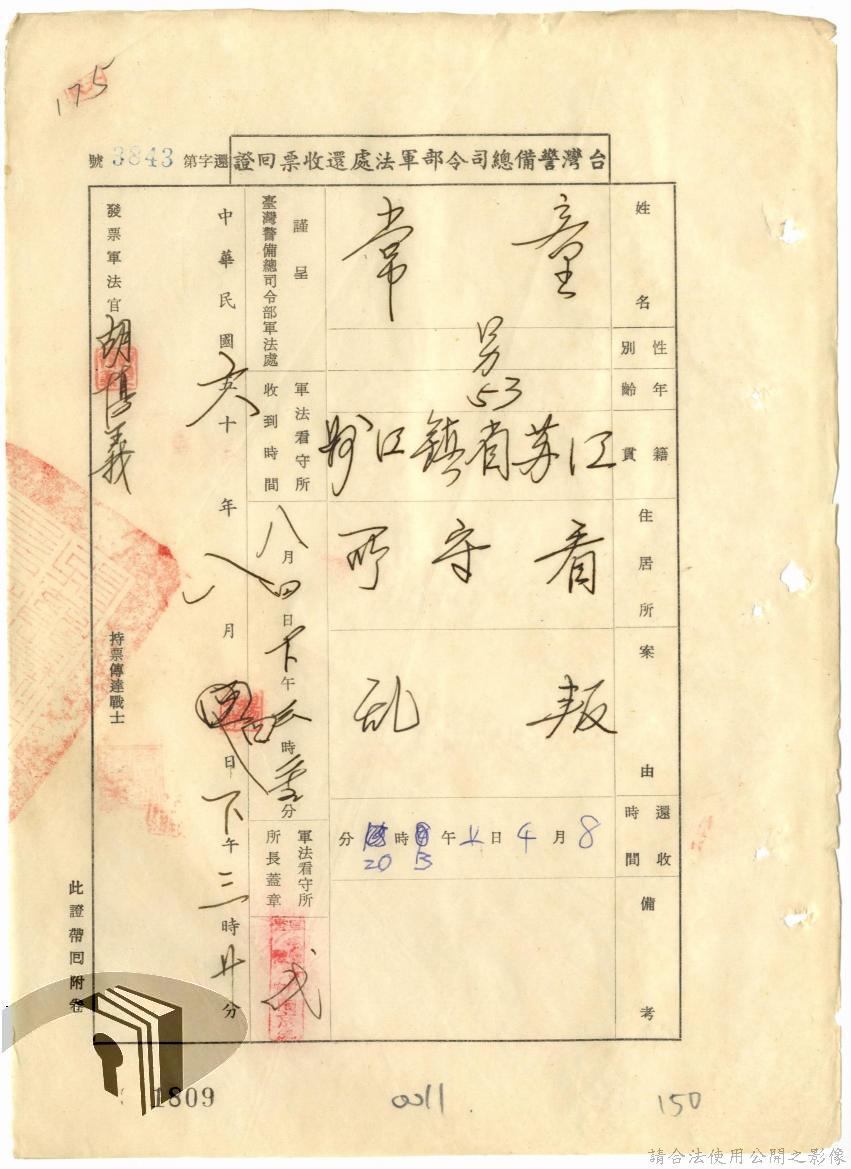 175
台灣警備總司令部軍法處還收票回證
還字第3843號
姓名
童常
性別
男
年齡
53
籍貫
江苏省鎮江縣
住居所
看守所
案由
叛乱
還收時間
8月4日午時分
13 20
備考
謹呈
臺灣警備總司令部軍法處
軍法看守所收到時間
八月四日下午時分
軍法看守所所長蓋章
中華民國六十年八月四日下午三時廿分
發票軍法官
胡
義
持票傳達戰士
此證帶回附卷
1809
0011
150
請合法使用公開之影像